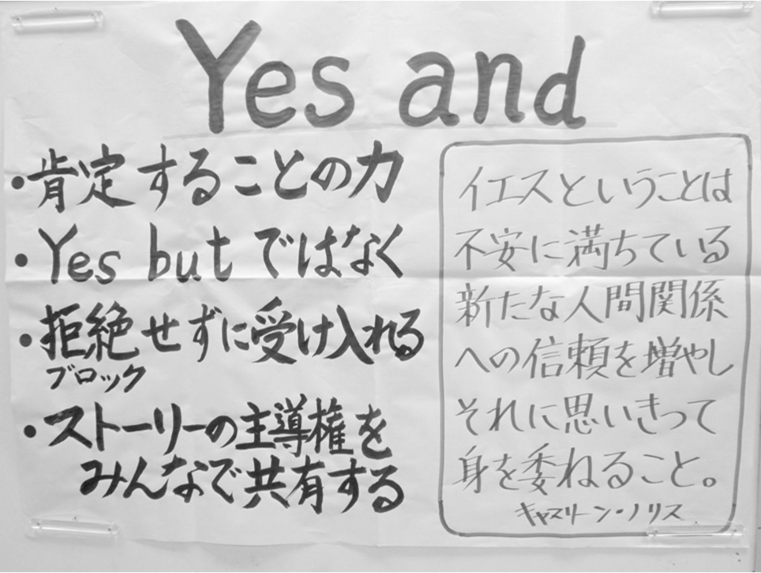 Yes and
・肯定することの力
・Yes but ではなく
・拒絶せずに受け入れる
ブロック
・ストーリーの主導権を
みんなで共有する
イエスということは
不安に満ちている
新たな人間関係
への信頼を増やし
それに思いきって
身を委ねること。
キャスリーン・ノリス